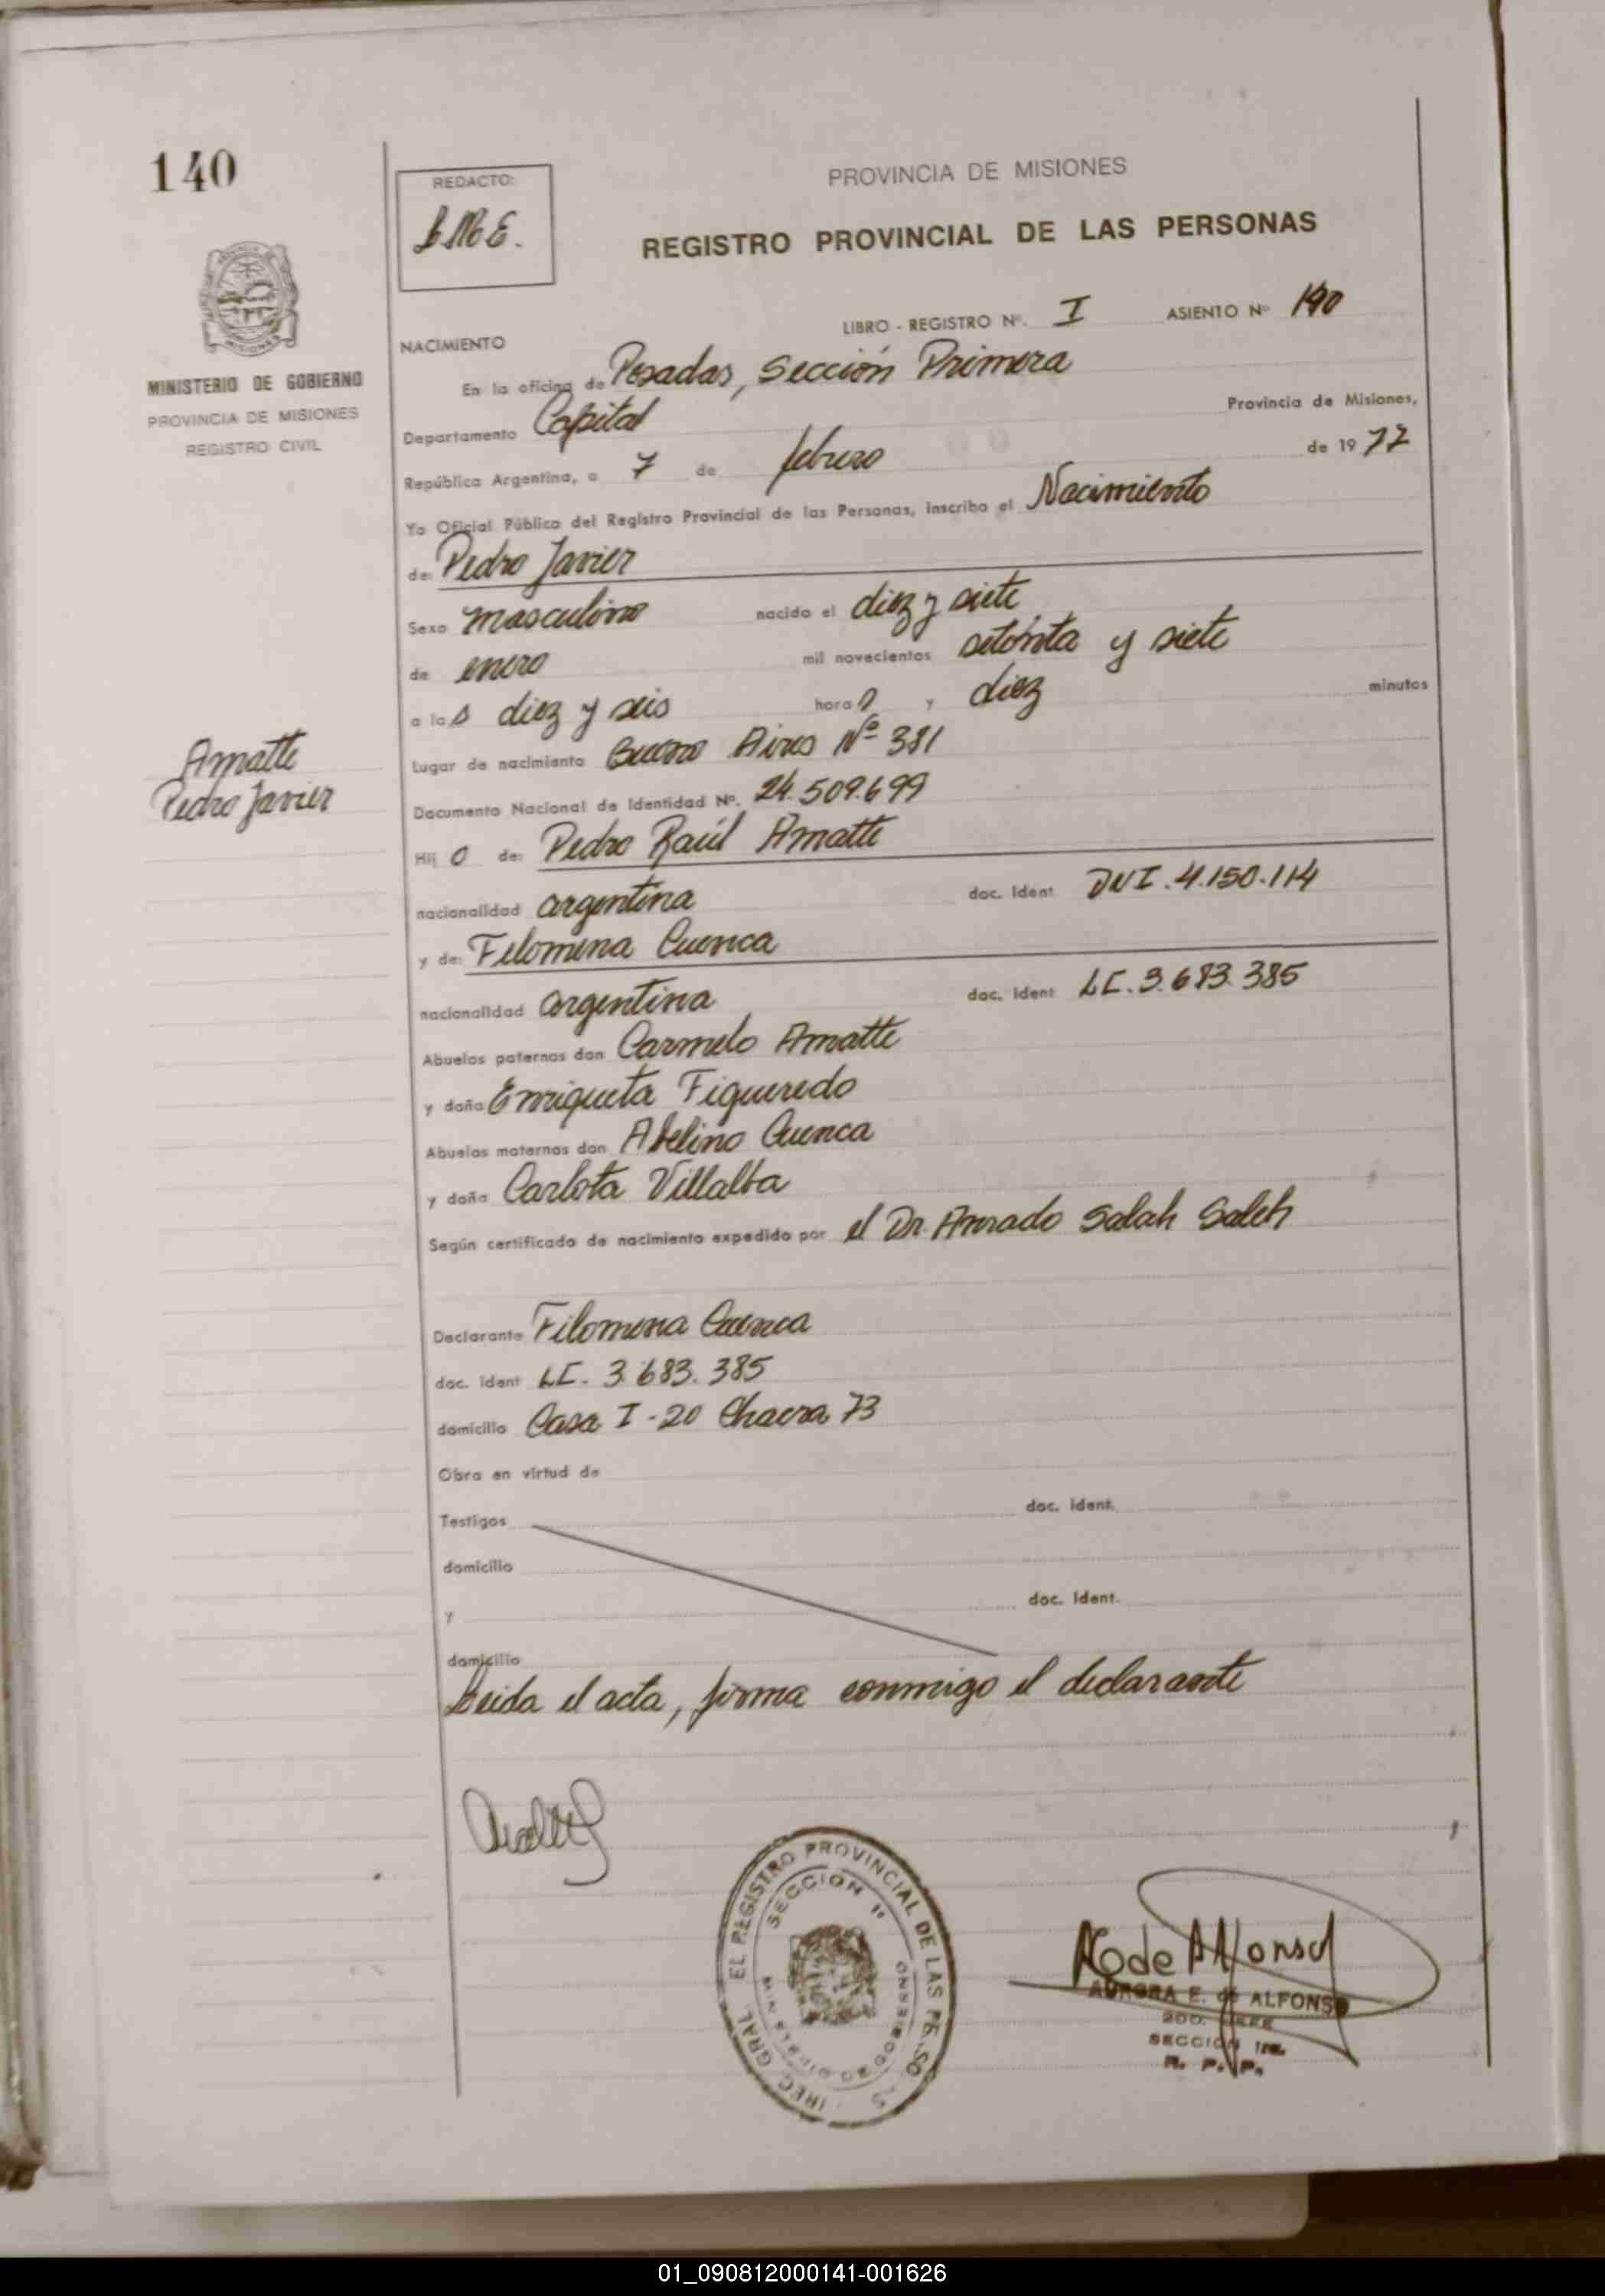 140
REDACTO:
PROVINCIA DE MISIONES
REGISTRO PROVINCIAL DE LAS PERSONAS
LIBRO - REGISTRO Nº. I ASIENTO Nº 140
NACIMIENTO
MINISTERIO DE GOBIERNO
PROVINCIA DE MISIONES
REGISTRO CIVIL
En la oficina de Posadas, Sección Primera
Departamento Capital Provincia de Misiones,
República Argentina, a 7 de febrero de 19 77
Yo Oficial Público del Registro Provincial de las Personas, inscribo el Nacimiento
de: Pedro Javier
Sexo masculino nacido el diez y siete
de enero mil novecientos setenta y siete
a las diez y seis horas y diez minutos
Amatte
Pedro Javier
Lugar de nacimiento Buenos Aires Nº 381
Documento Nacional de Identidad Nº. 24.509.699
Hij o de: Pedro Raúl Amatte
nacionalidad argentina doc. Ident DNI. 4.150.114
y de: Filomena Cuenca
nacionalidad argentina doc. Ident LC. 3.683.385
Abuelos paternos don Carmelo Amatte
y doña Enriqueta Figueredo
Abuelos maternos don Abelino Cuenca
y doña Carlota Villalba
Según certificado de nacimiento expedido por el Dr. Amado Salah Saleh
Declarante Filomena Cuenca
doc. Ident LC. 3.683.385
domicilio Casa I-20 Chacra 73
Obra en virtud de
Testigos doc. Ident.
domicilio
y doc. Ident.
domicilio
Leida el acta, firma conmigo el declarante
GRAL EL REGISTRO PROVINCIAL DE LAS
SECCION 1ª
AURORA E. de ALFONSO
2DO. JEFE
SECCION 1ra.
R. P. P.
01_090812000141-001626